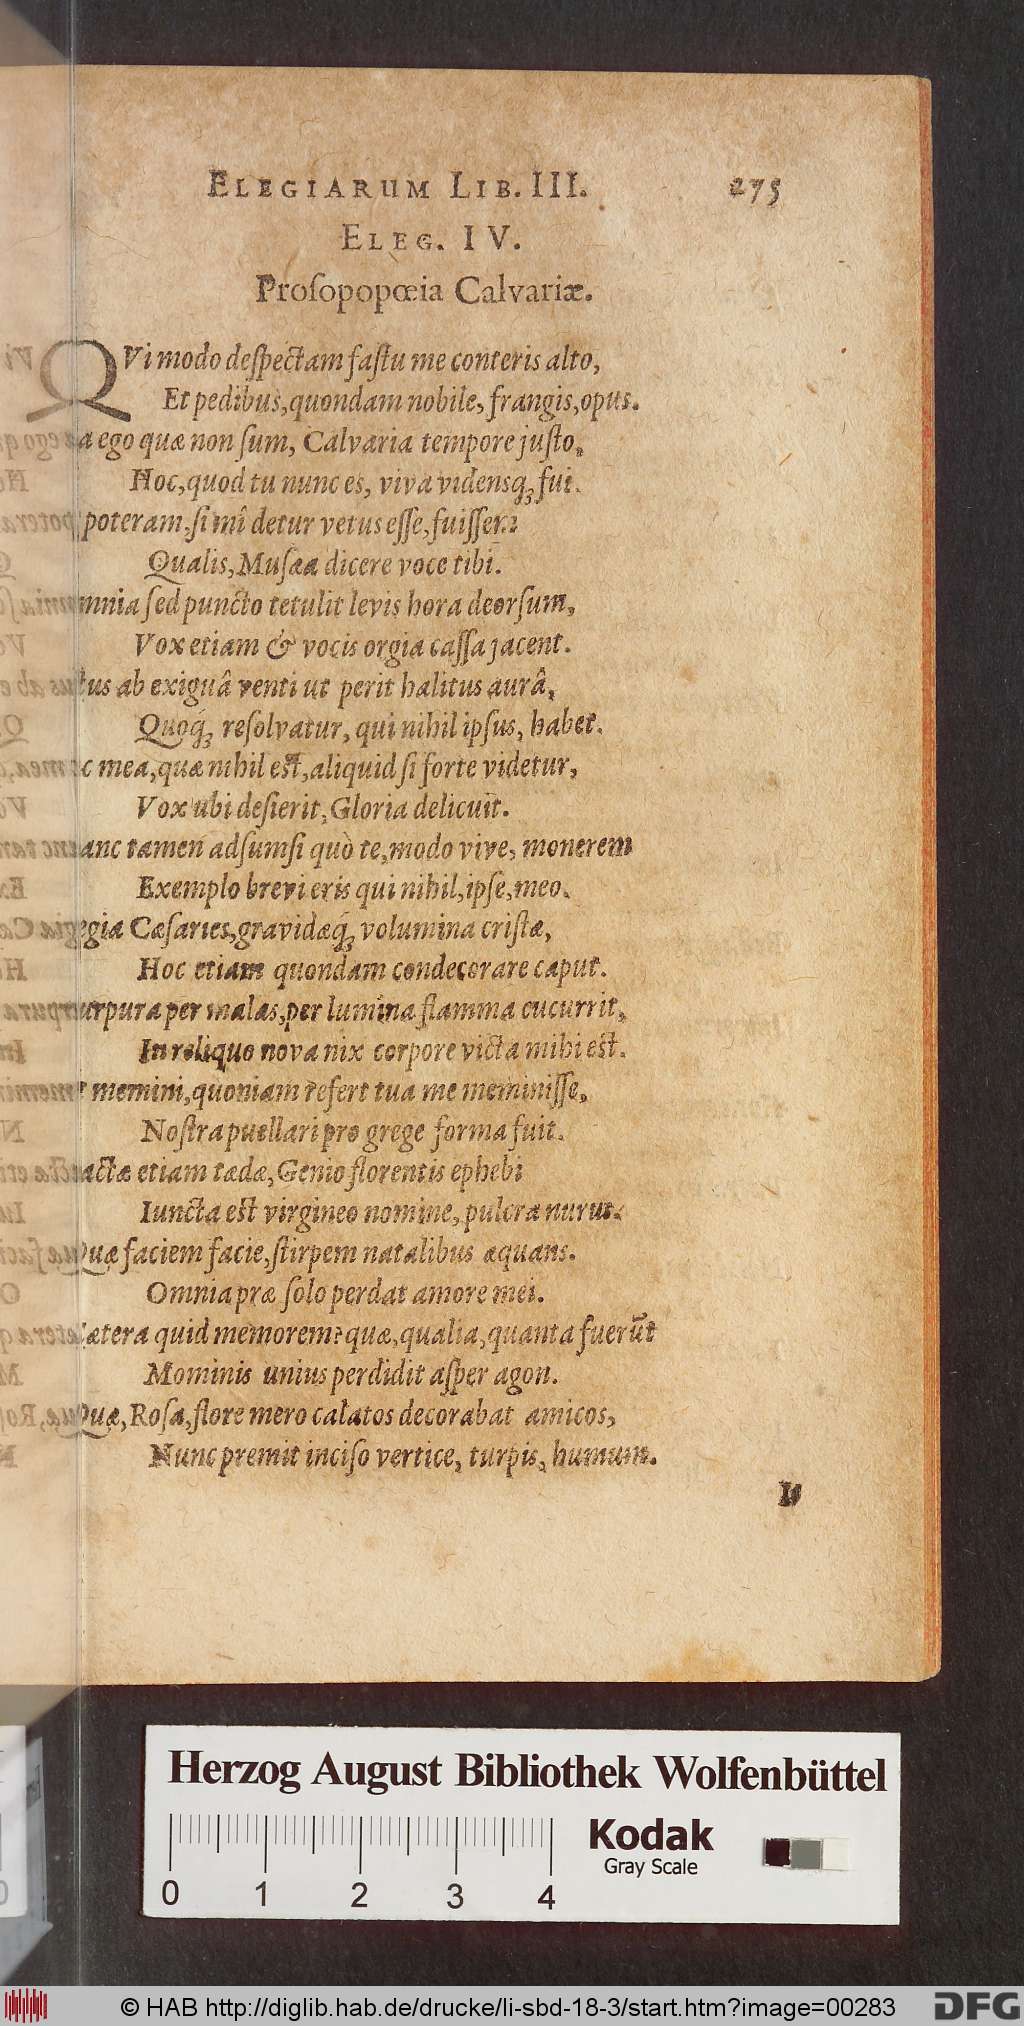 ELEGIARUM LIB. III. 275
ELEG. IV.
Prosopopœia Calvariæ.
QVi modo despectam fastu me conteris alto,
Et pedibus, quondam nobile, frangis, opus.
ego quæ non sum, Calvaria tempore justo,
Hoc, quod tu nunc es, viva vidensq; fui.
poteram, si mî detur vetus esse, fuisse?
Qualis, Musæa dicere voce tibi.
omnia sed puncto tetulit levis hora deorsum,
Vox etiam & vocis orgia cassa jacent.
ab exiguâ venti ut perit halitus aurâ,
Quoq; resolvatur, qui nihil ipsus, habet.
mea, quæ nihil est, aliquid si forte videtur,
Vox ubi desierit, Gloria delicuit.
tamen adsumsi quò te, modo vive, monerem
Exemplo brevi eris qui nihil, ipse, meo.
Cæsaries, gravidæq; volumina cristæ,
Hoc etiam quondam condecorare caput.
Purpura per malas, per lumina flamma cucurrit,
In reliquo nova nix corpore victa mihi est.
memini, quoniam refert tua me meminisse,
Nostra puellari pro grege forma fuit.
etiam tædæ, Genio florentis ephebi
Iuncta est virgineo nomine, pulcra nurus.
Quæ faciem facie, stirpem natalibus æquans.
Omnia præ solo perdat amore mei.
Cætera quid memorem? quæ, qualia, quanta fuerũt
Mominis unius perdidit asper agon.
Quæ, Rosa, flore mero calatos decorabat amicos,
Nunc premit inciso vertice, turpis, humum.
Herzog August Bibliothek Wolfenbüttel
Kodak
Gray Scale
0 1 2 3 4
© HAB http://diglib.hab.de/drucke/li-sbd-18-3/start.htm?image=00283
DFG